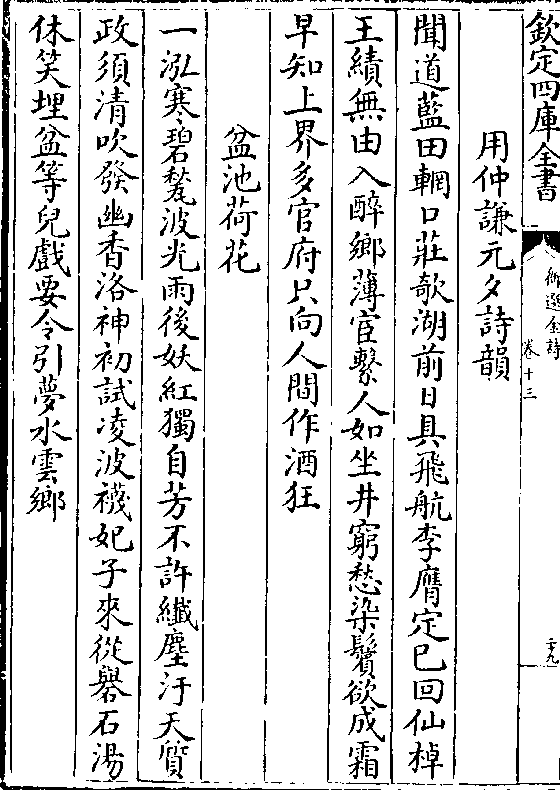 欽定四庫全書
御選金詩
卷十三
二十九
用仲謙元夕詩韻
聞道藍田輞口莊欹湖前日具飛航李膺定已回仙棹
王績無由入醉鄉薄宦繫人如坐井窮愁染鬢欲成霜
早知上界多官府只向人間作酒狂
盆池荷花
一泓寒碧甃波光雨後妖紅獨自芳不許纖塵汙天質
政須清吹發幽香洛神初試凌波襪妃子來從礜石湯
休笑埋盆等兒戲要令引夢水雲鄉